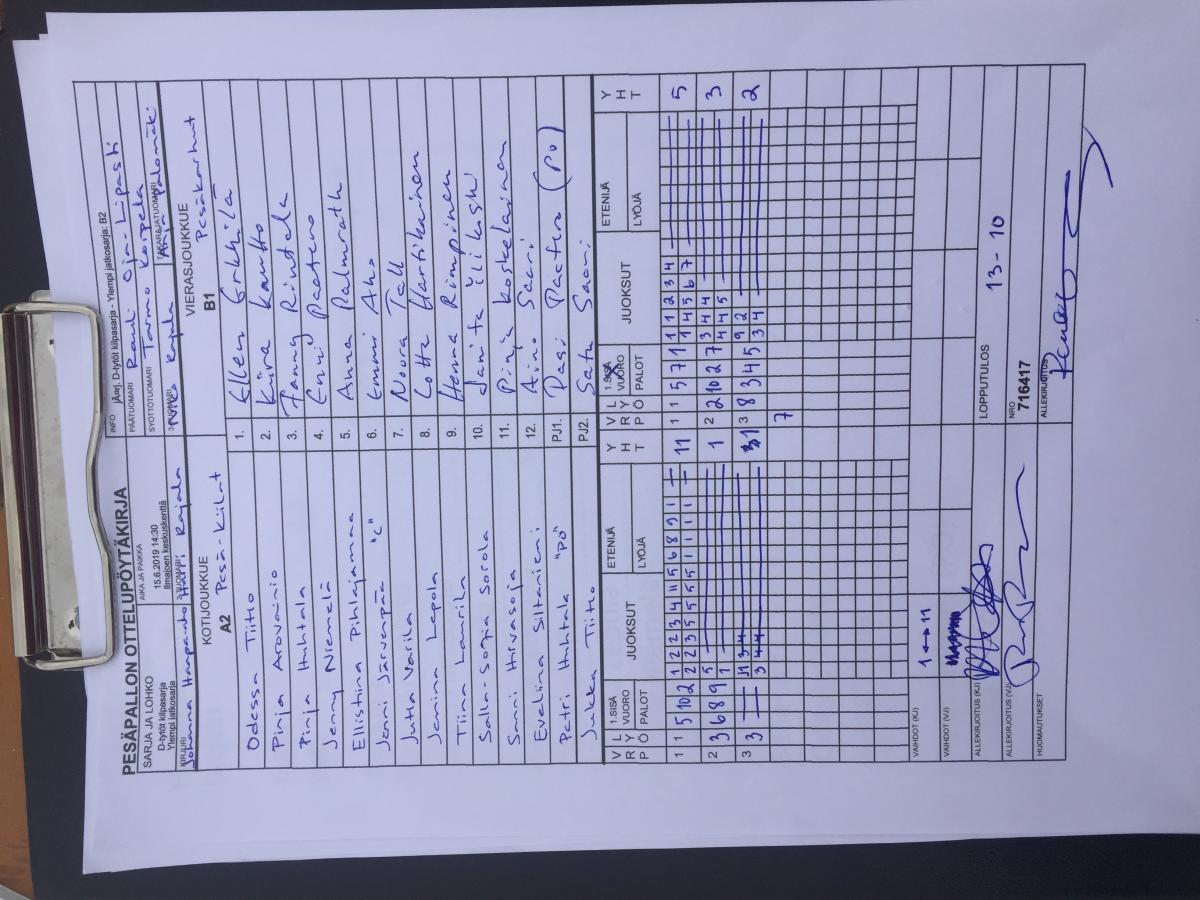 PESÄPALLON OTTELUPÖYTÄKIRJA
SARJA JA LOHKO
D-tytöt kilpasarja
Ylempi jatkosarja
AIKA JA PAIKKA
15.6.2019 14:30
Ilmajoen keskuskenttä
INFO
jAarj. D-tytöt kilpasarja - Ylempi jatkosarja: B2
PÄÄTUOMARI Pauli Oja-Lipasti
SYÖTTÖTUOMARI Tarmo Korpela
KIRJURI
Johanna Haapanto
2-TUOMARI Harri Rajala
3-TUOMARI
TAKARAJATUOMARI
KOTIJOUKKUE
A2 Pesä-Kiilat
VIERASJOUKKUE
B1 Pesäkarhut
Odessa Tiitto 1. Ellen Erkkilä
Pinja Arovainio 2. Kiira Kantto
Pinja Huhtala 3. Fanny Rintala
Jenny Niemelä 4. Enni Paateno
Ellistiina Pihlajamaa 5. Anna Palmroth
Jenni Järvenpää "C" 6. Emmi Aho
Jutta Varila 7. Noora Tall
Jemina Lepola 8. Lotta Hartikainen
Tiina Laurila 9. Henna Rimpinen
Salla-Sofia Sorola 10. Janita Ylikoski
Sanni Hirvasoja 11. Pinja Koskelainen
Eveliina Siltaniemi 12. Aino Saari
Petri Huhtala "PÖ" PJ1. Pasi Paateno (PÖ)
Jukka Tiitto PJ2. Satu Saari
V R P L Y Ö 1.SISÄ VUORO PALOT JUOKSUT ETENIJÄ LYÖJÄ Y H T
V R P L Y Ö 1.SISÄ VUORO PALOT JUOKSUT ETENIJÄ LYÖJÄ Y H T
1 1 5 10 2 1 2 2 3 4 11 5 6 8 9 1 11
2 2 3 5 5 5 5 1 1 1 1 1
1 1 5 7 1 1 1 2 3 4 5
1 4 5 6 7
2 3 6 8 9 5 1
1
2 2 10 2 7 3 4 4 3
4 4 5
3 3 11 3 4 31
3 4 4
3 8 3 4 5 9 2 2
3 4
7
VAIHDOT (KJ) 1 ↔ 11
VAIHDOT (VJ)
LOPPUTULOS 13 - 10
ALLEKIRJOITUS (KJ)
ALLEKIRJOITUS (VJ)
NRO
716417
HUOMAUTUKSET
ALLEKIRJOITUS